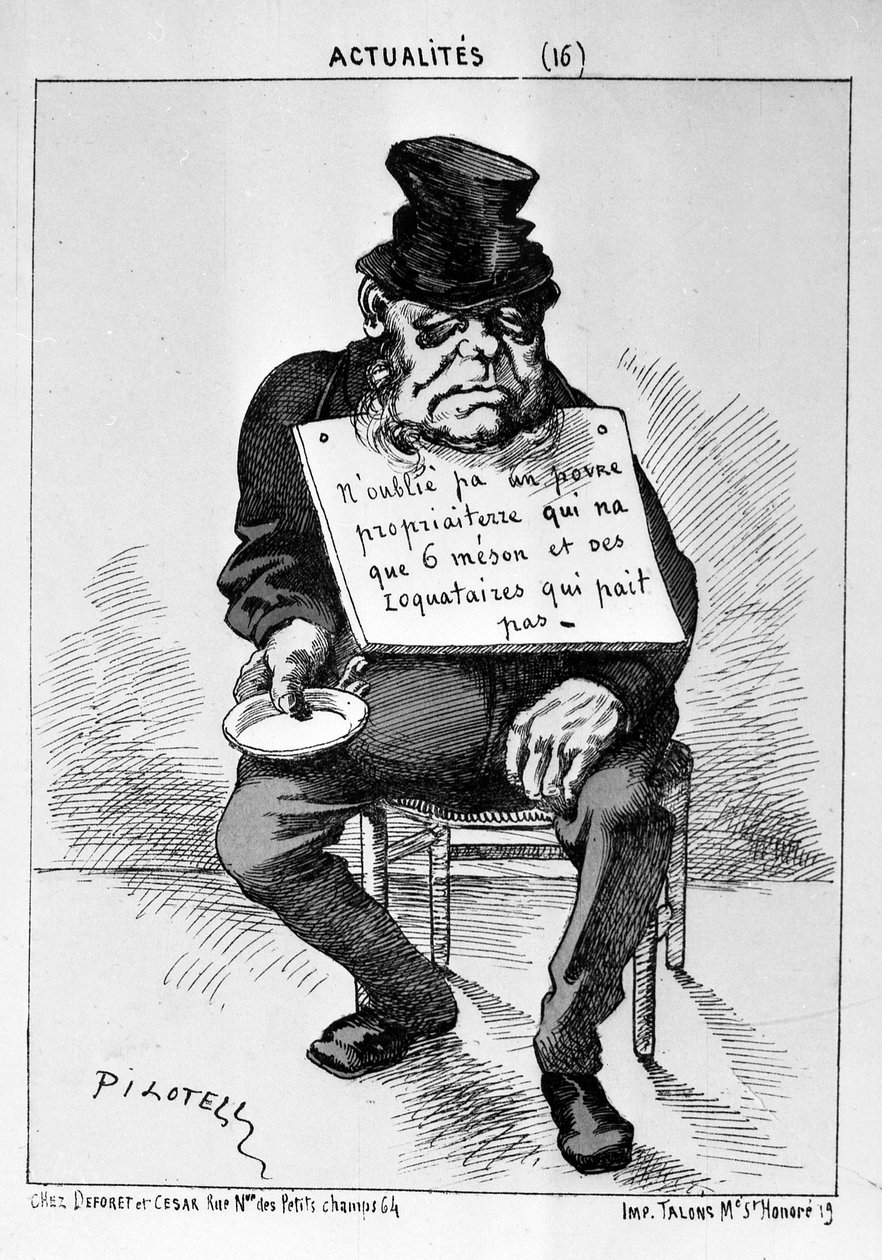 ACTUALITÉS (16)
N'oublié pa un povre
propriaiterre qui na
que 6 méson et des
loquataires qui pait
pas —
PILOTELL
CHEZ DEFORET et CESAR Rue Nve des Petits champs 64
IMP. TALONS Mé St Honoré 19